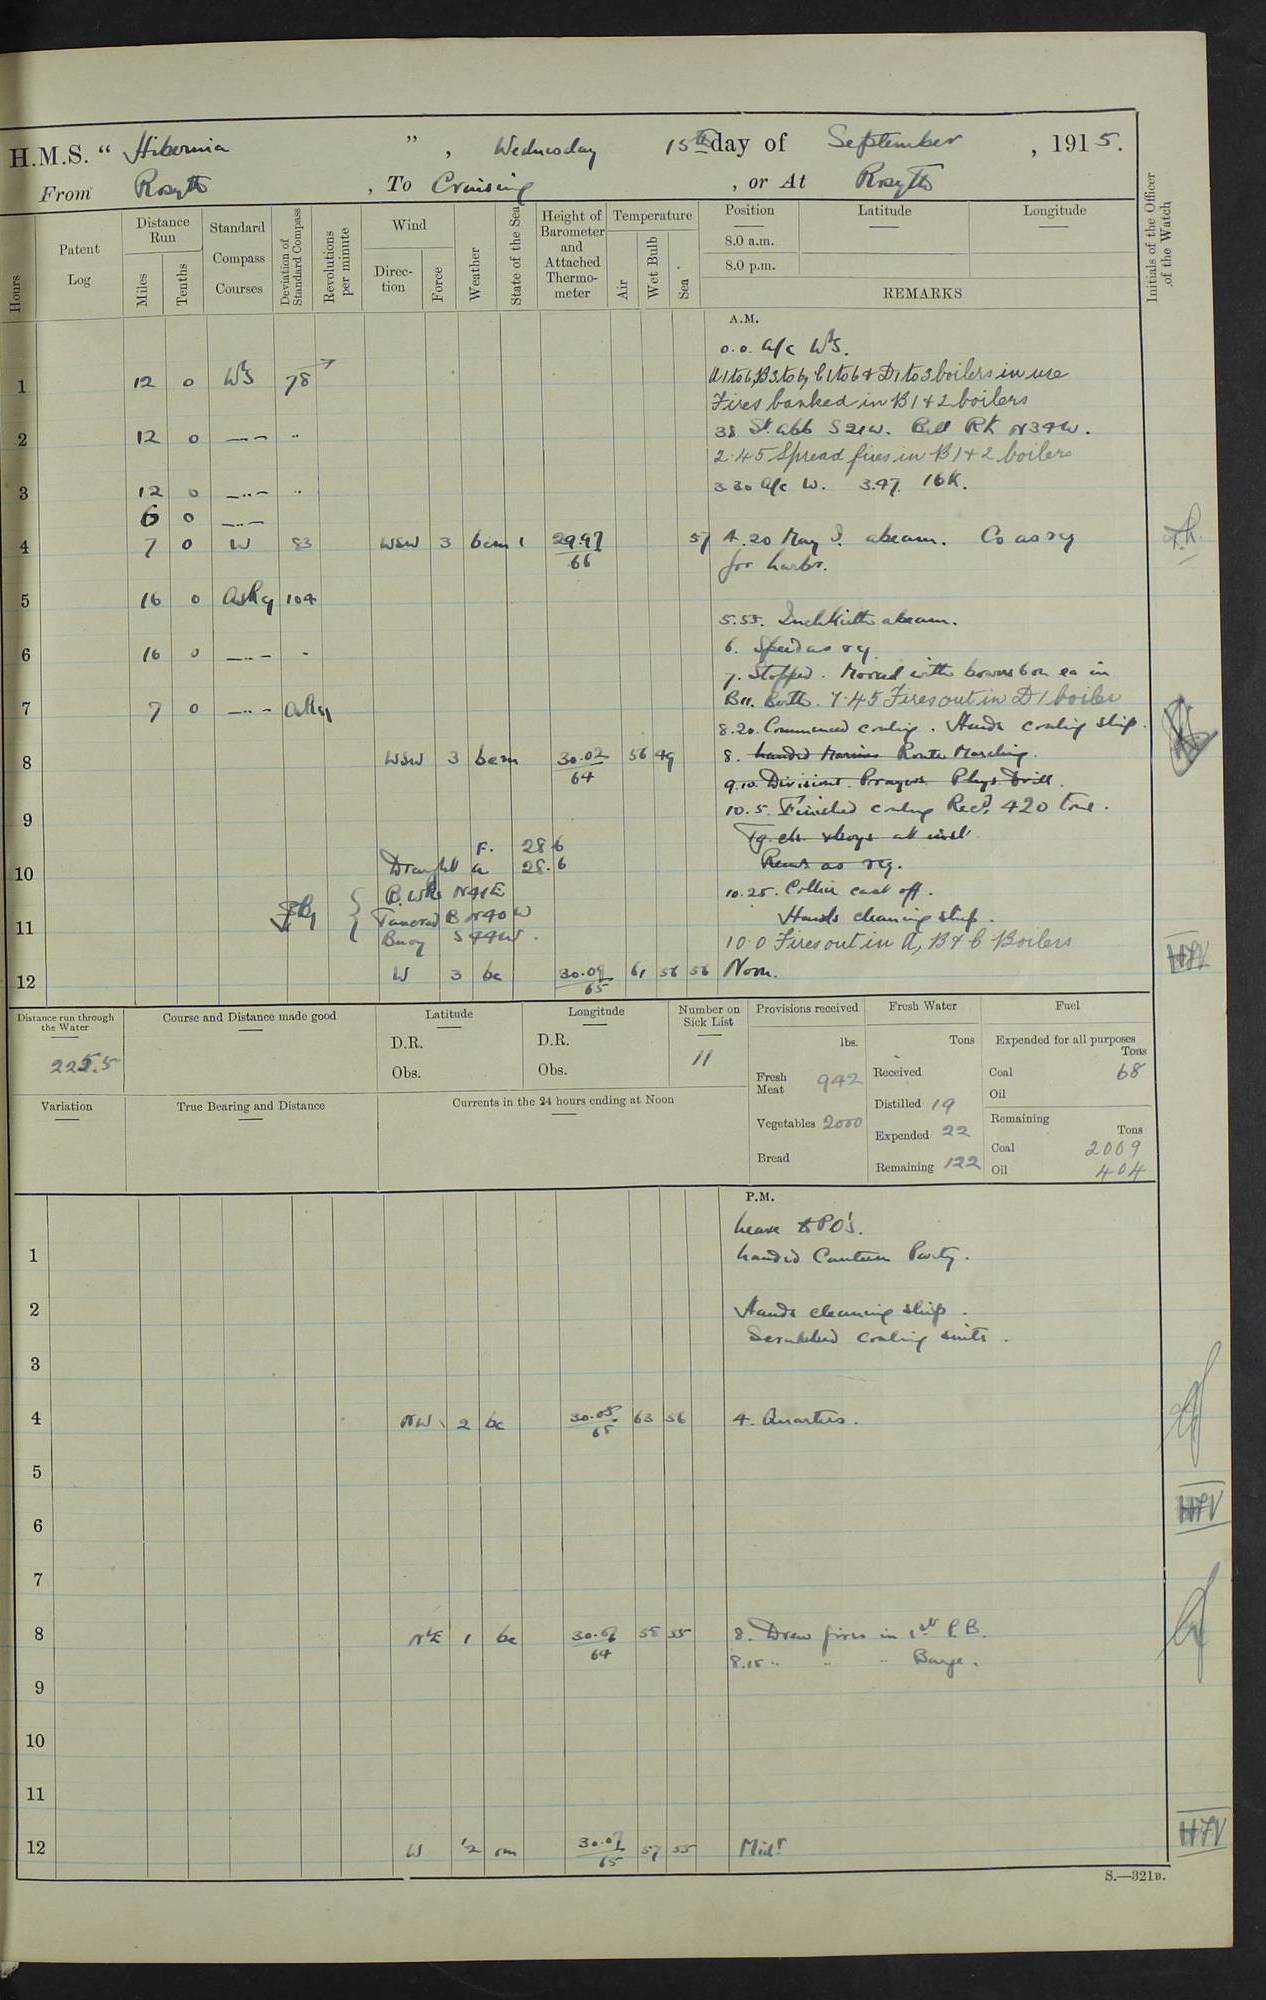 H.M.S. " Hibernia ", Wednesday 15th day of September, 1915.
From Rosyth, To Cruising, or At Rosyth
Hours Patent Log Distance Run Miles Tenths Standard Compass Courses Deviation of Standard Compass Revolutions per minute Wind Direction Force Weather State of the Sea Height of Barometer and Attached Thermometer Temperature Air Wet Bulb Sea Position Latitude Longitude
8.0 a.m.
8.0 p.m.
REMARKS
Initials of the Officer of the Watch
A.M.
0.0. a/c WbS.
1 12 0 WbS 78 A1 to 6, B3 to 6, C1 to 6 & D1 to 3 boilers in use
Fires banked in B1 & 2 boilers
2 12 0 —..— .. 38 St. Abb S21W. Bell Rk N34W.
2.45 Spread fires in B1 & 2 boilers
3 12 0 —..— .. 3.30 a/c W. 3.47. 16K.
6 0 —..—
4 7 0 W 83 WSW 3 bcm 1 29.97 66 57 4.20 May I. abeam. Co as rq
for harbr.
5 16 0 As Rq 104
5.55. Inchkeith abeam.
6 16 0 —..— - 6. Speed as rq
7. Stopped. Moored with bowers 6 on ea in
7 7 0 —..— AsRq B11. Berth. 7.45 Fires out in D1 boiler
8.20. Commenced coaling. Hands coaling ship.
8 WSW 3 bcm 30.02 64 56 49 8. Landed Marines Route Marching.
9.10. Divisions. Prayers. Phys. Drill.
10.5. Finished coaling Recd. 420 tons.
9
F. 28 6
Draught A 28.6
Rems as rq.
10
B. Wks N41E
10.25. Collier cast off.
Tancred B N40W
Hands cleaning ship.
11 Buoy S44W. 10.0 Fires out in A, B & C Boilers
12 W 3 bc 30.09 65 61 56 56 Noon.
Distance run through the Water 225.5
Course and Distance made good
Latitude
D.R.
Obs.
Longitude
D.R.
Obs.
Number on Sick List 11
Provisions received
lbs.
Fresh Meat 942
Vegetables 2000
Bread
Fresh Water
Tons
Received
Distilled 19
Expended 22
Remaining 122
Fuel
Expended for all purposes
Tons
Coal 68
Oil
Remaining
Tons
Coal 2009
Oil 404
Variation
True Bearing and Distance
Currents in the 24 hours ending at Noon
P.M.
Leave to PO's.
1 Landed Canteen Party.
2 Hands cleaning ship.
Scrubbed coaling suits.
3
4 NW 2 bc 30.05 65 63 56 4. Quarters.
5
6 HFV
7
8 NbE 1 bc 30.06 64 58 55 8. Drew fires in 1st P.B.
8.15 .. .. .. Barge.
9
10
11
12 W 1/2 om 30.07 65 57 55 Midt. HFV
S.—321B.